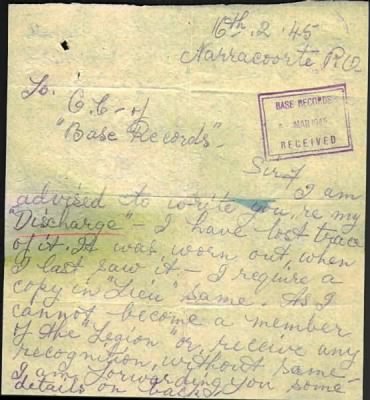 16th.2.45
Narracoorte P.O
To.
O.C - of
"Base Records".
BASE RECORDS
MAR 1945
RECEIVED
Sir/ I am
advised to write you, re my
"Discharge" - I have lost trace
of it. It was worn out, when
I last saw it - I require a
copy in "Lieu" same. As I
cannot become a member
of the "Legion" or, receive any
recognition, without same -
I am forwarding you some
details on back